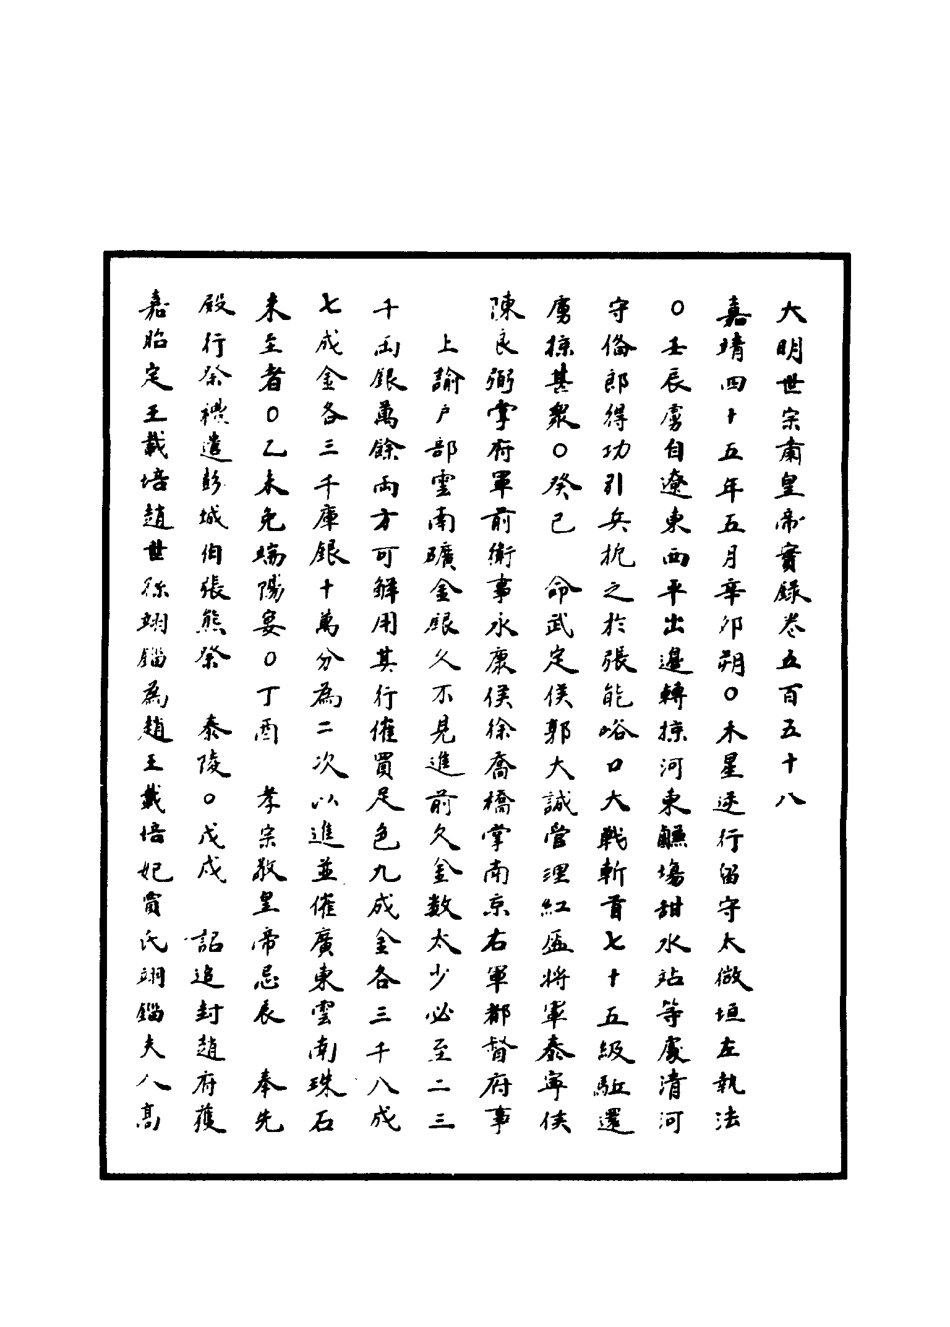 大明世宗肅皇帝實錄卷五百五十八
嘉靖四十五年五月辛卯朔○木星逆行留守太微垣左執法
○壬辰虜自遼東西平出邊轉掠河東鹽場甜水站等處清河
守俻郎得功引兵扼之於張能峪口大戰斬首七十五級駈還
虜掠甚衆○癸巳　命武定侯郭大誠管理紅盔將軍泰寧侯
陳良弼掌府軍前衛事永康侯徐喬橋掌南京右軍都督府事
上諭户部雲南礦金銀久不見進前久金数太少必至二三
千両銀萬餘両方可觧用其行催買足色九成金各三千八成
七成金各三千庫銀十萬分為二次以進並催廣東雲南珠石
未至者○乙未免端陽宴○丁酉　孝宗敬皇帝忌辰　奉先
殿行祭禮遣彭城伯張熊祭　泰陵○戊戌　詔追封趙府獲
嘉昭定王載培趙世孫翊錙為趙王載培妃賈氏翊錙夫人高